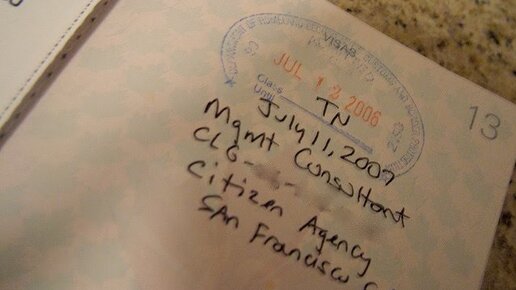 VISAB
JUL 12 2006
Class
Until
13
TN
July 11, 2007
Mgmt Consultant
CLG-
Citizen Agency
San Francisco